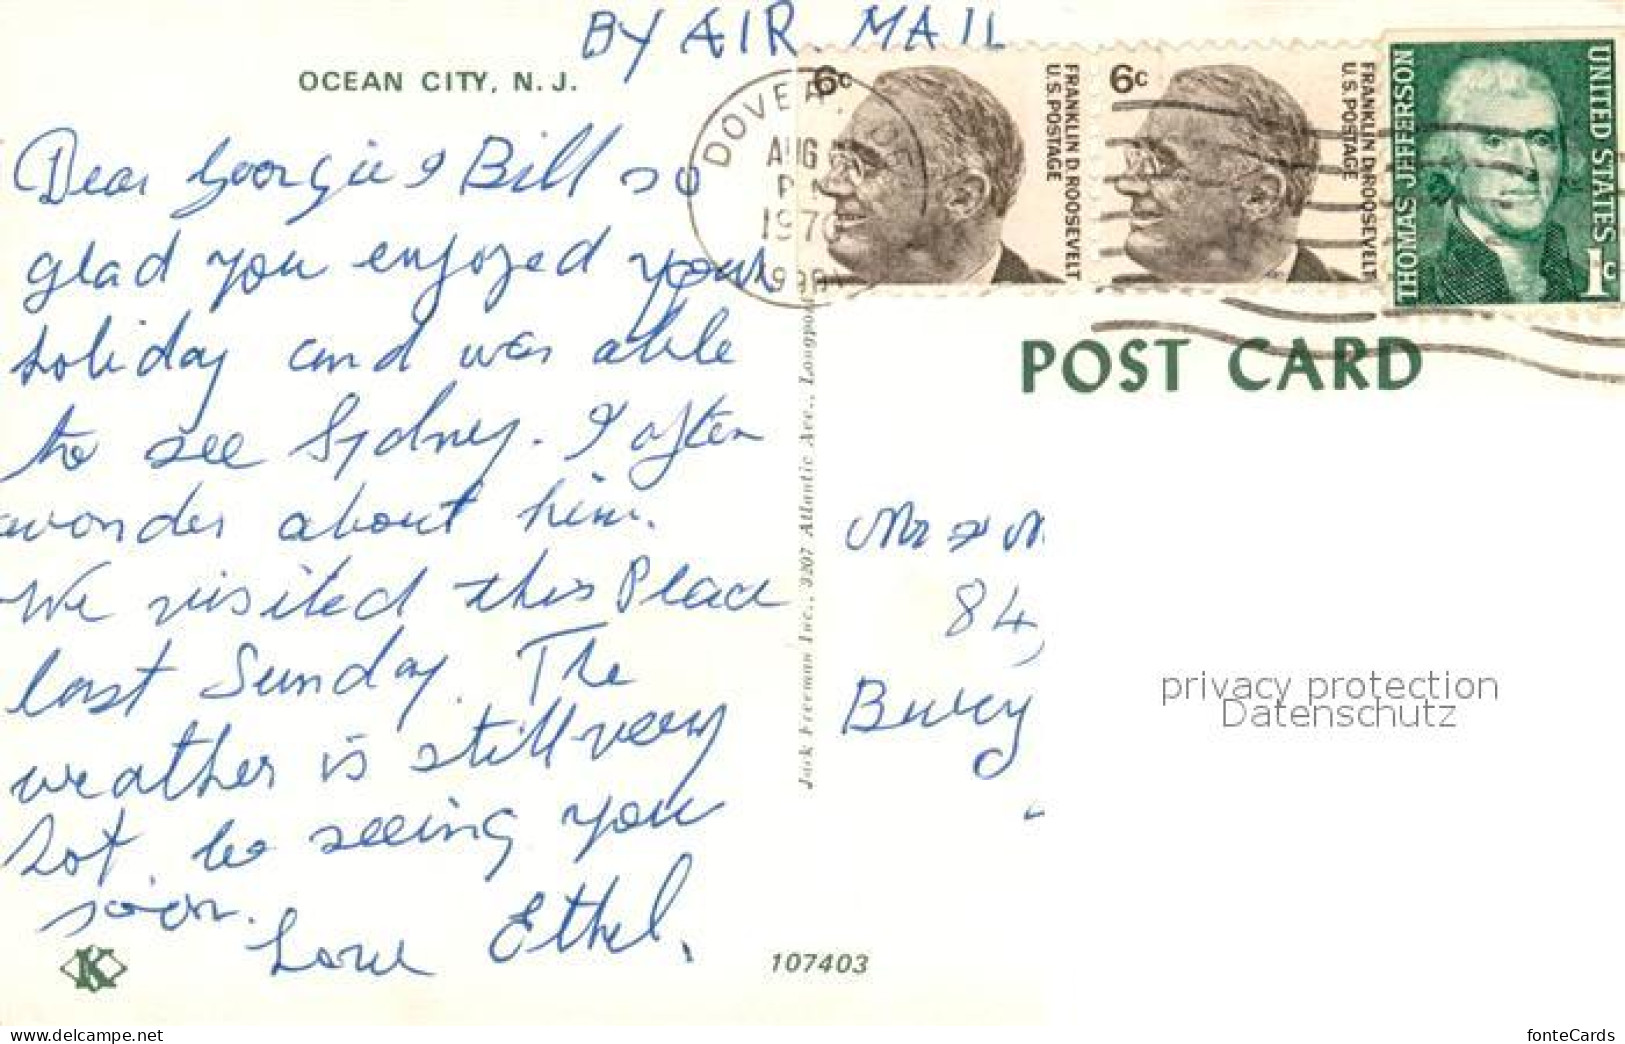 BY AIR. MAIL
OCEAN CITY, N. J.
Dear Georgie & Bill so
glad you enjoyed your
holiday and was able
to see Sydney. I often
wonder about him.
We visited this Place
last Sunday. The
weather is still very
hot. be seeing you
soon.
Love Ethel.
K
107403
Jack Freeman Inc., 3207 Atlantic Ave., Longpo
DOVER, DE
AUG
PM
1970
6c
FRANKLIN D. ROOSEVELT
U.S. POSTAGE
6c
FRANKLIN D. ROOSEVELT
U.S. POSTAGE
THOMAS JEFFERSON
UNITED STATES
1c
POST CARD
Mr & M
84,
privacy protection
Datenschutz
www.delcampe.net
fonteCards